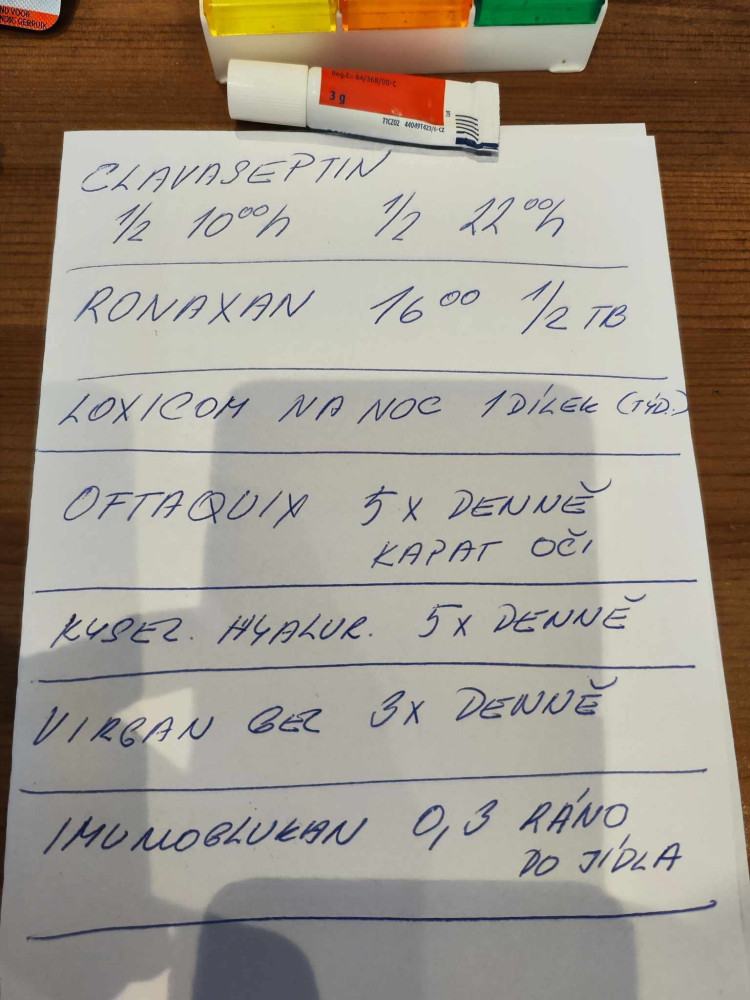 ND VOOR
NDIG GEBRUIK
Reg.č.: 64/368/00-C
3 g
T1CZ02 440491423/6-CZ
CLAVASEPTIN
1/2 10⁰⁰h 1/2 22⁰⁰h
RONAXAN 16⁰⁰ 1/2 TB
LOXICOM NA NOC 1 DÍLEK (TÝD.)
OFTAQUIX 5X DENNĚ
KAPAT OČI
KYSEL. HYALUR. 5X DENNĚ
VIRGAN GEL 3X DENNĚ
IMUNOGLUKAN 0,3 RÁNO
DO JÍDLA